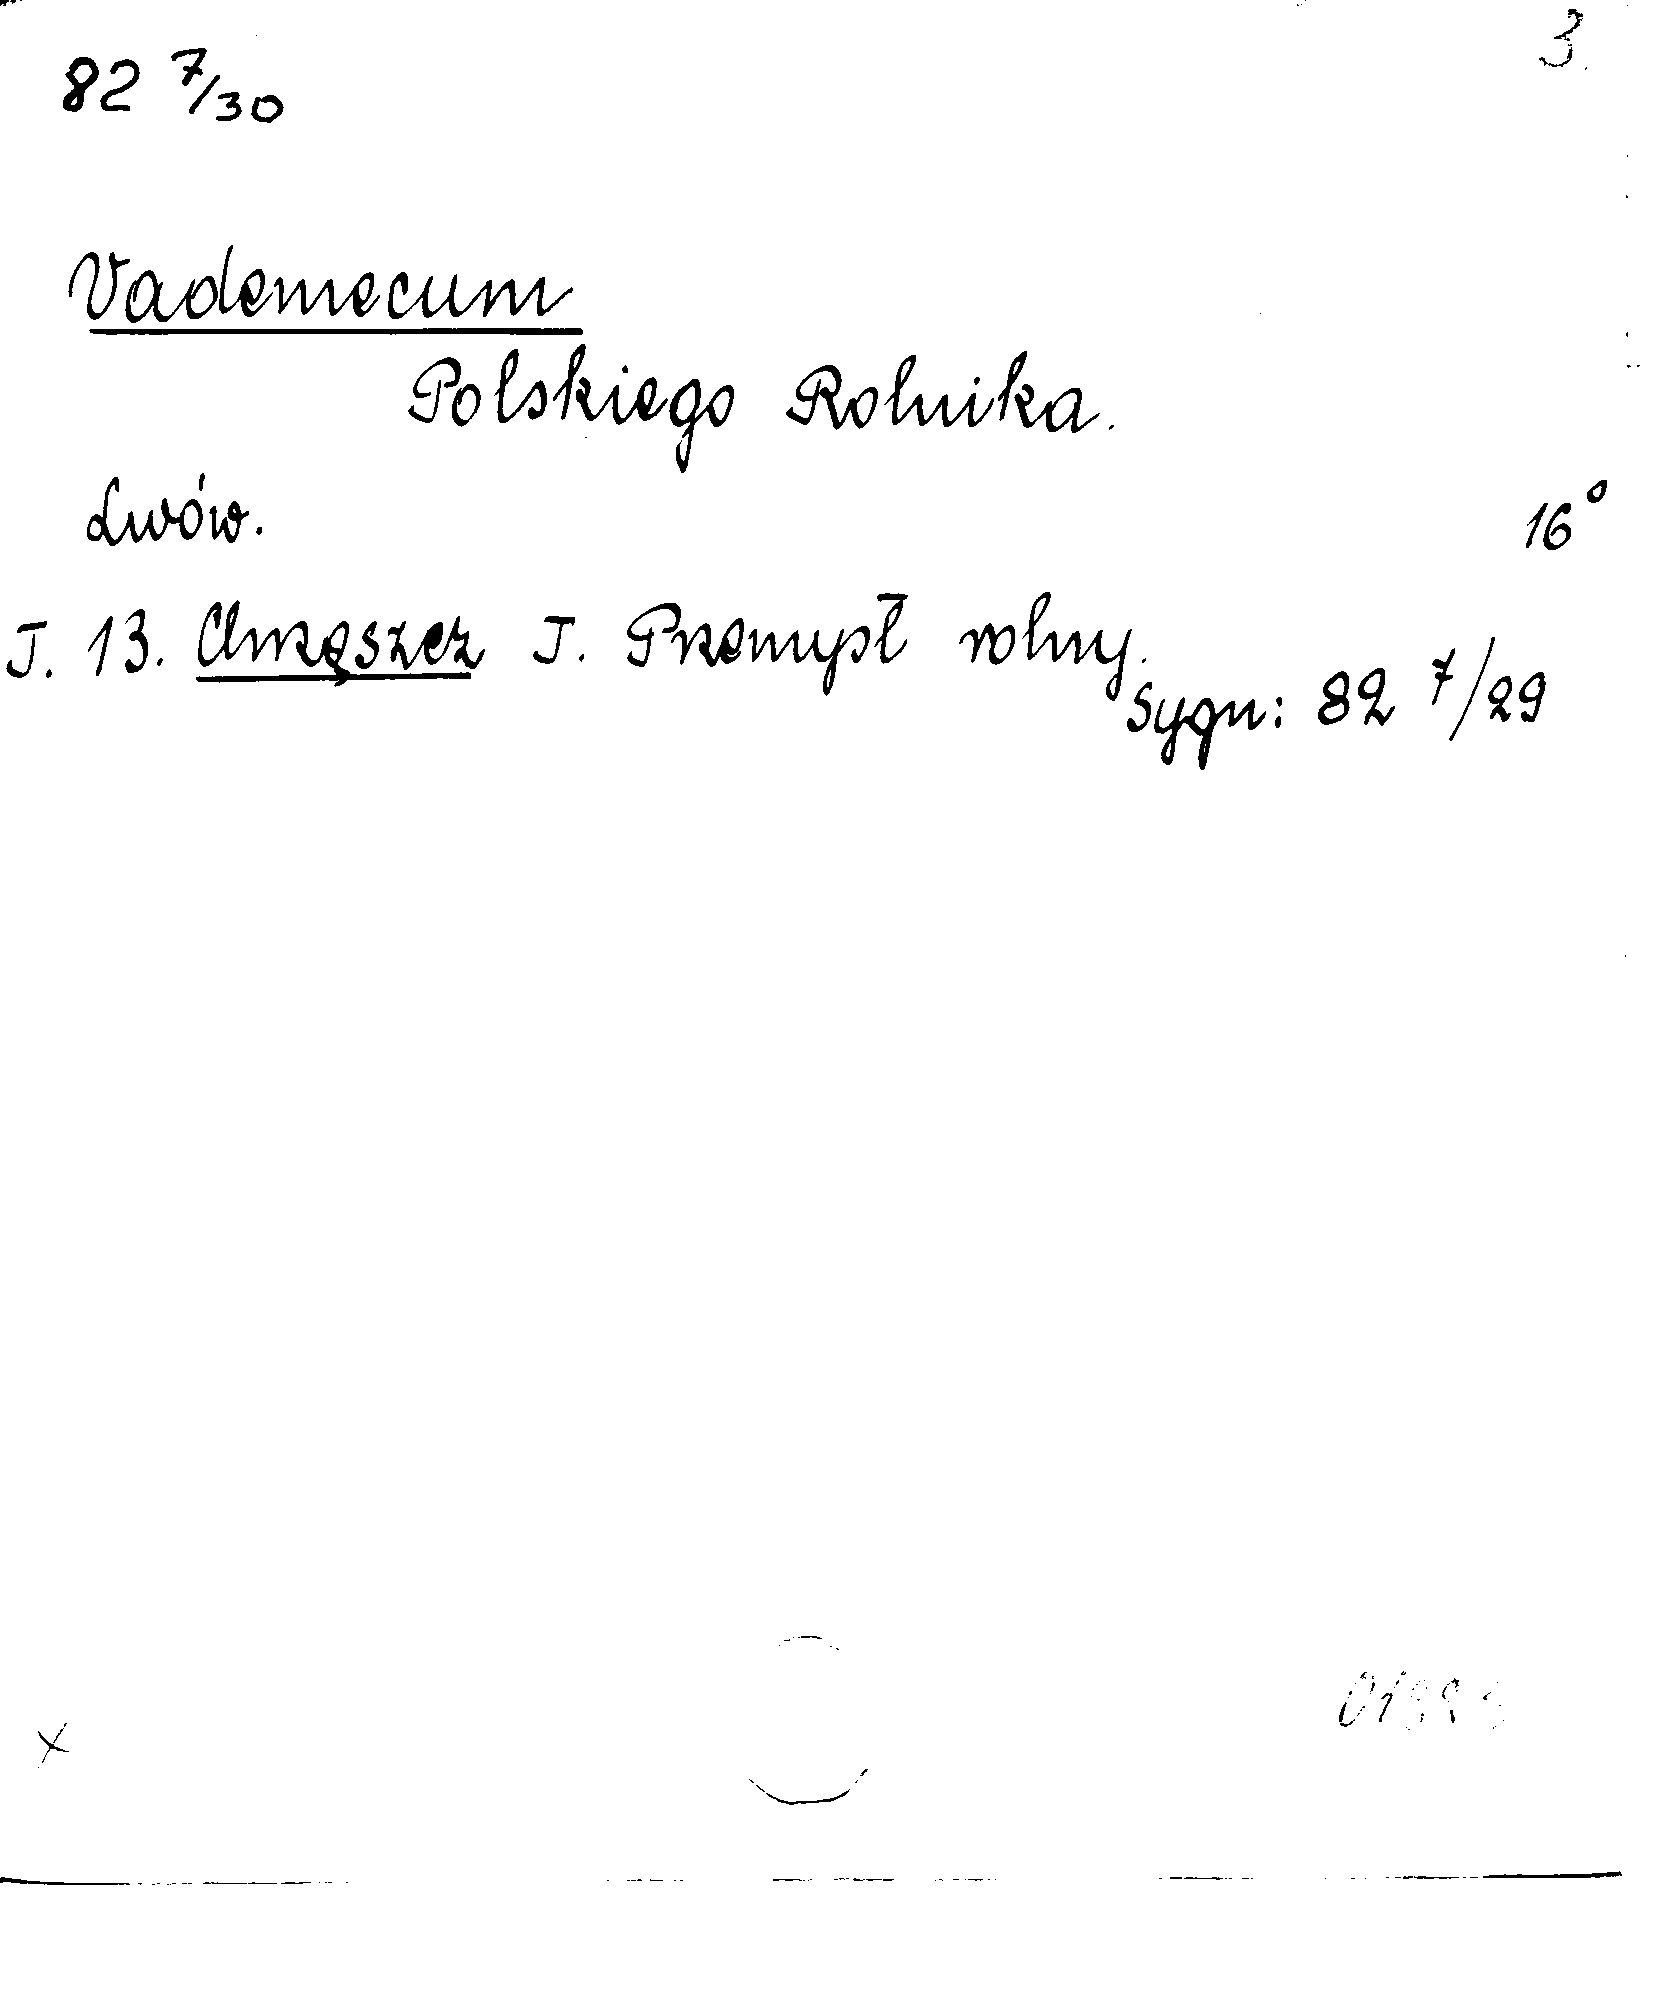 3.
82 7/30
Vademecum
Polskiego Rolnika.
Lwów.
16°
T. 13. Chrząszcz T. Przemysł rolny.
Sygn: 82 7/29